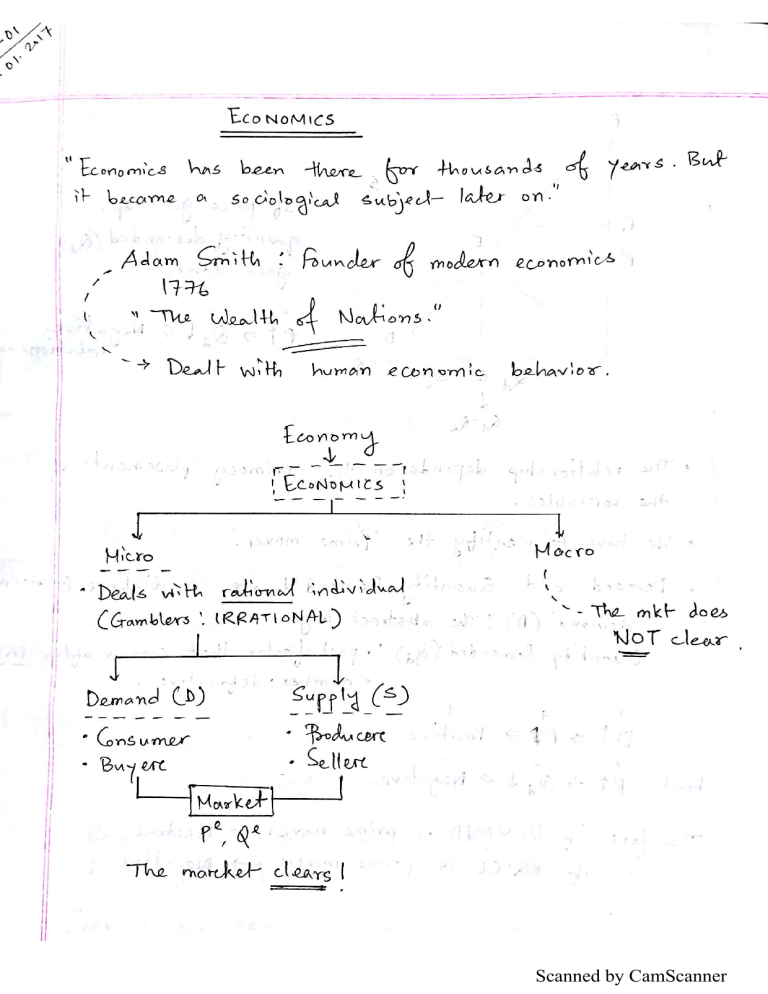 -01
01. 2017
ECONOMICS
"Economics has been there for thousands of years. But
it became a sociological subject later on."
Adam Smith : Founder of modern economics
1776
"The Wealth of Nations."
→ Dealt with human economic behavior.
Economy
ECONOMICS
Micro
Macro
• Deals with rational individual
(Gamblers : IRRATIONAL)
The mkt does
NOT clear.
Demand (D)
Supply (S)
• Consumer
• Producer
• Buyer
• Seller
Market
Pe, Qe
The market clears!
Scanned by CamScanner